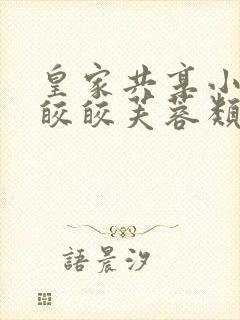 皇家共享小
皎皎芙蓉類
語晨汐